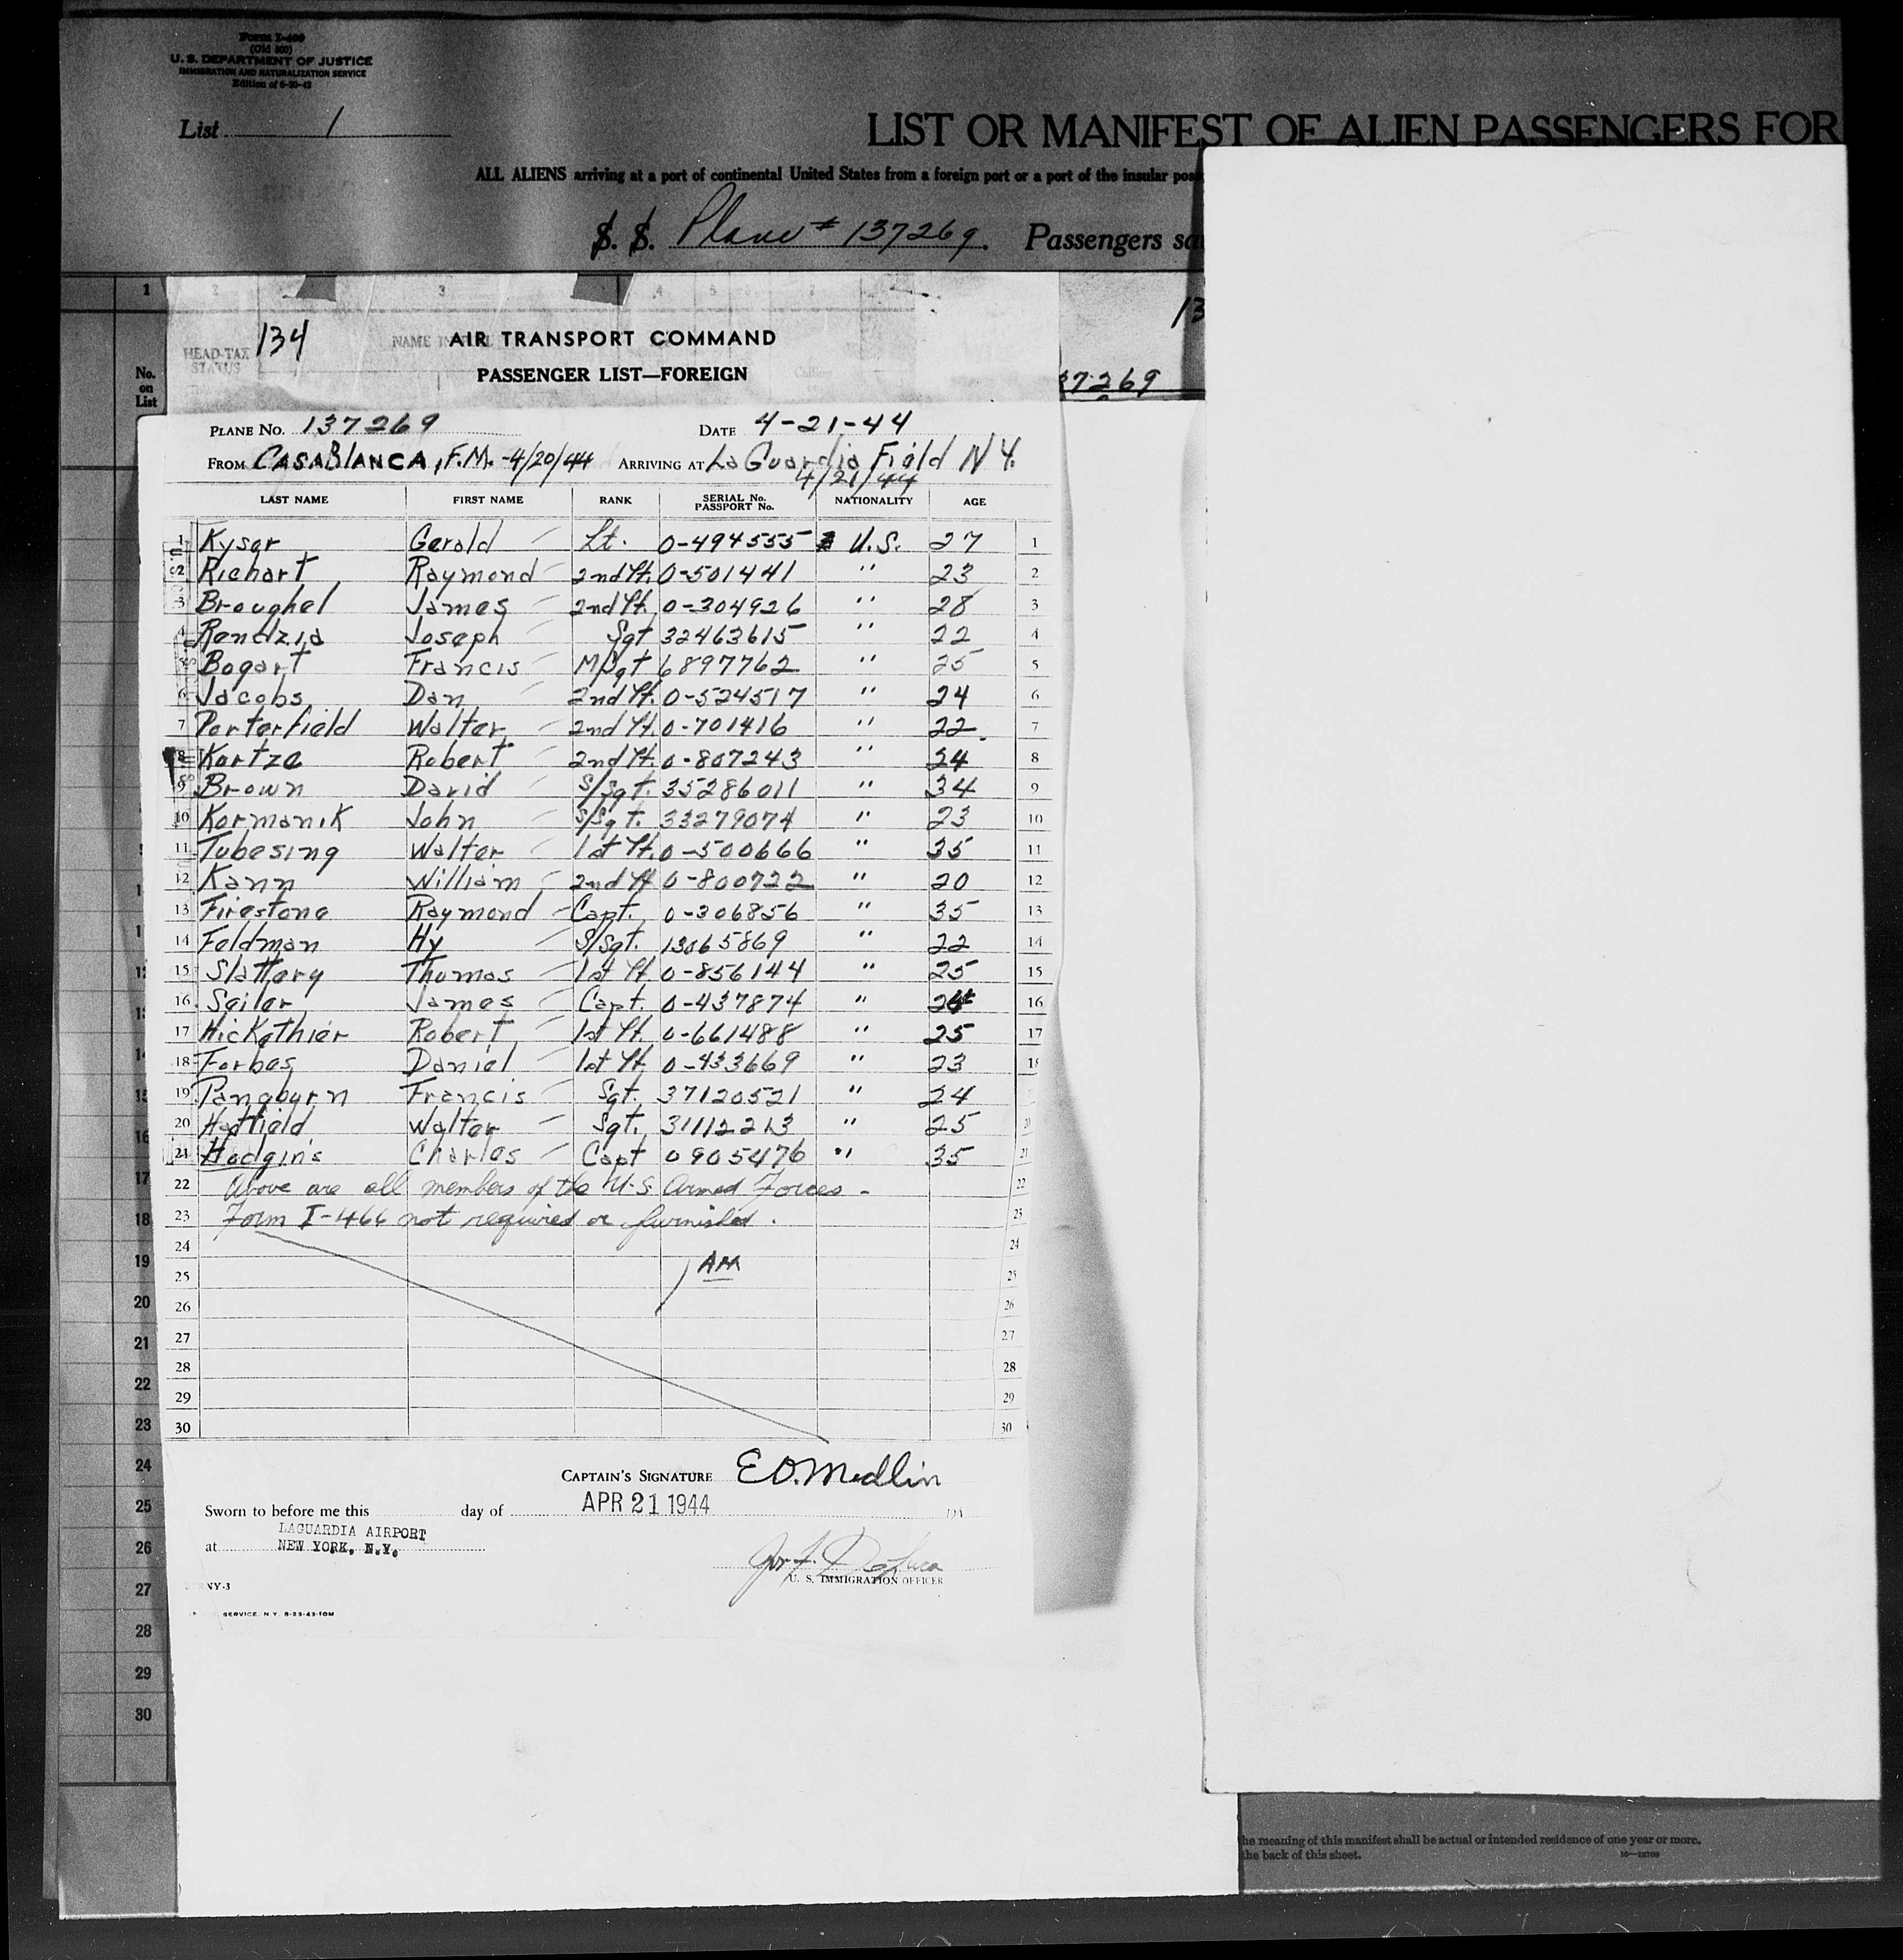 Form I-400
(Old 800)
U. S. DEPARTMENT OF JUSTICE
IMMIGRATION AND NATURALIZATION SERVICE
Edition of 6-20-42
List 1
LIST OR MANIFEST OF ALIEN PASSENGERS FOR
ALL ALIENS arriving at a port of continental United States from a foreign port or a port of the insular
S. S. Plane # 137269. Passengers
1 2 3 4 5 6 7
HEAD-TAX STATUS
134
NAME
AIR TRANSPORT COMMAND
PASSENGER LIST—FOREIGN
No. on List
37269
PLANE No. 137269 DATE 4-21-44
FROM CASABLANCA, F.M. -4/20/44 ARRIVING AT LaGuardia Field N.Y.
4/21/44
LAST NAME FIRST NAME RANK SERIAL No. PASSPORT No. NATIONALITY AGE
1 Kyser Gerald Lt. 0-494555 U.S. 27 1
2 Richart Raymond 2nd Lt. 0-501441 " 23 2
3 Broughel James 2nd Lt. 0-304926 " 28 3
4 Rendzia Joseph Sgt 32463615 " 22 4
5 Bogart Francis M/Sgt 6897762 " 25 5
6 Jacobs Dan 2nd Lt. 0-524517 " 24 6
7 Porterfield Walter 2nd Lt. 0-701416 " 22 7
8 Kortze Robert 2nd Lt. 0-807243 " 24 8
9 Brown David S/Sgt. 35286011 " 34 9
10 Kormanik John S/Sgt. 33279074 " 23 10
11 Tubesing Walter 1st Lt. 0-500666 " 35 11
12 Kann William 2nd Lt 0-800722 " 20 12
13 Firestone Raymond Capt. 0-306856 " 35 13
14 Feldman Hy S/Sgt. 13065869 " 22 14
15 Slattery Thomas 1st Lt. 0-856144 " 25 15
16 Seiler James Capt. 0-437874 " 16
17 Hickethier Robert 1st Lt. 0-661488 " 25 17
18 Forbes Daniel 1st Lt. 0-433669 " 23 18
19 Pangburn Francis Sgt. 37120521 " 24
20 Hatfield Walter Sgt. 31112213 " 25 20
21 Hodgins Charles Capt 0905476 " 35 21
22 Above are all members of the U.S. Armed Forces - 22
23 Form I-466 not required or furnished. 23
24 24
AM
25 25
26 26
27 27
28 28
29 29
30 30
CAPTAIN'S SIGNATURE E.O. Medlin
Sworn to before me this day of APR 21 1944 194
at LAGUARDIA AIRPORT
NEW YORK, N.Y.
Jos. F. DeLuca
U. S. IMMIGRATION OFFICER
NY-3
SERVICE, N.Y. 8-23-43-10M
17
18
19
20
21
22
23
24
25
26
27
28
29
30
he meaning of this manifest shall be actual or intended residence of one year or more.
the back of this sheet.